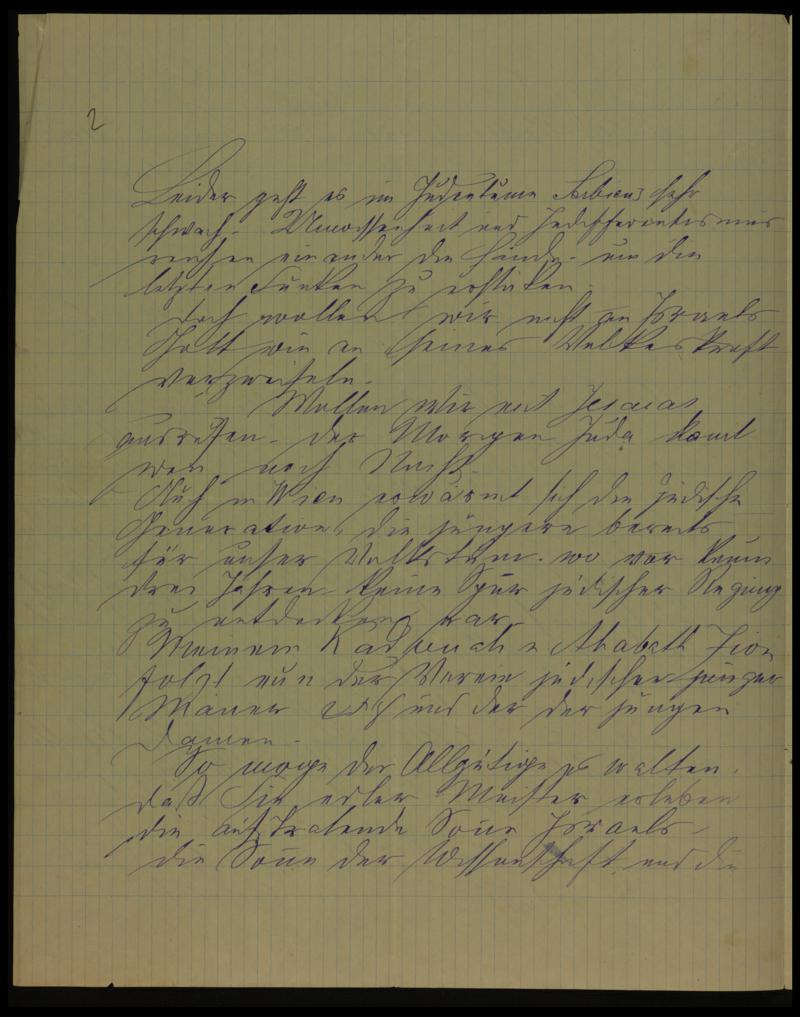 2
Leider geht es im Judentume Serbiens sehr
schwach. Unwissenheit und Indifferentismus
reichen einander die Hände um den
letzten Funken zu ersticken.
Doch wollen wir nicht an Israels
Gott wie an seines Volkes Kraft
verzweifeln.
Wollen wir mit Jesaias
ausrufen. Der Morgen Juda komt
wen noch Nacht.
Auch in Wien erwärmt sich die jüdische
Generation, die jüngere bereits
für unser Volkstum. wo vor kaum
drei Jahren keine Spur jüdischer Regung
zu entdecken war.
Meinem Kadimah u Ahabath Zion
folgt nun der Verein jüdischer junger
Mäner und der der jungen
Damen.
So möge der Allgütige es walten,
daß Sie edler Meister erleben
die aufstralende Sone Israels
die Sone der Wissenschaft und die